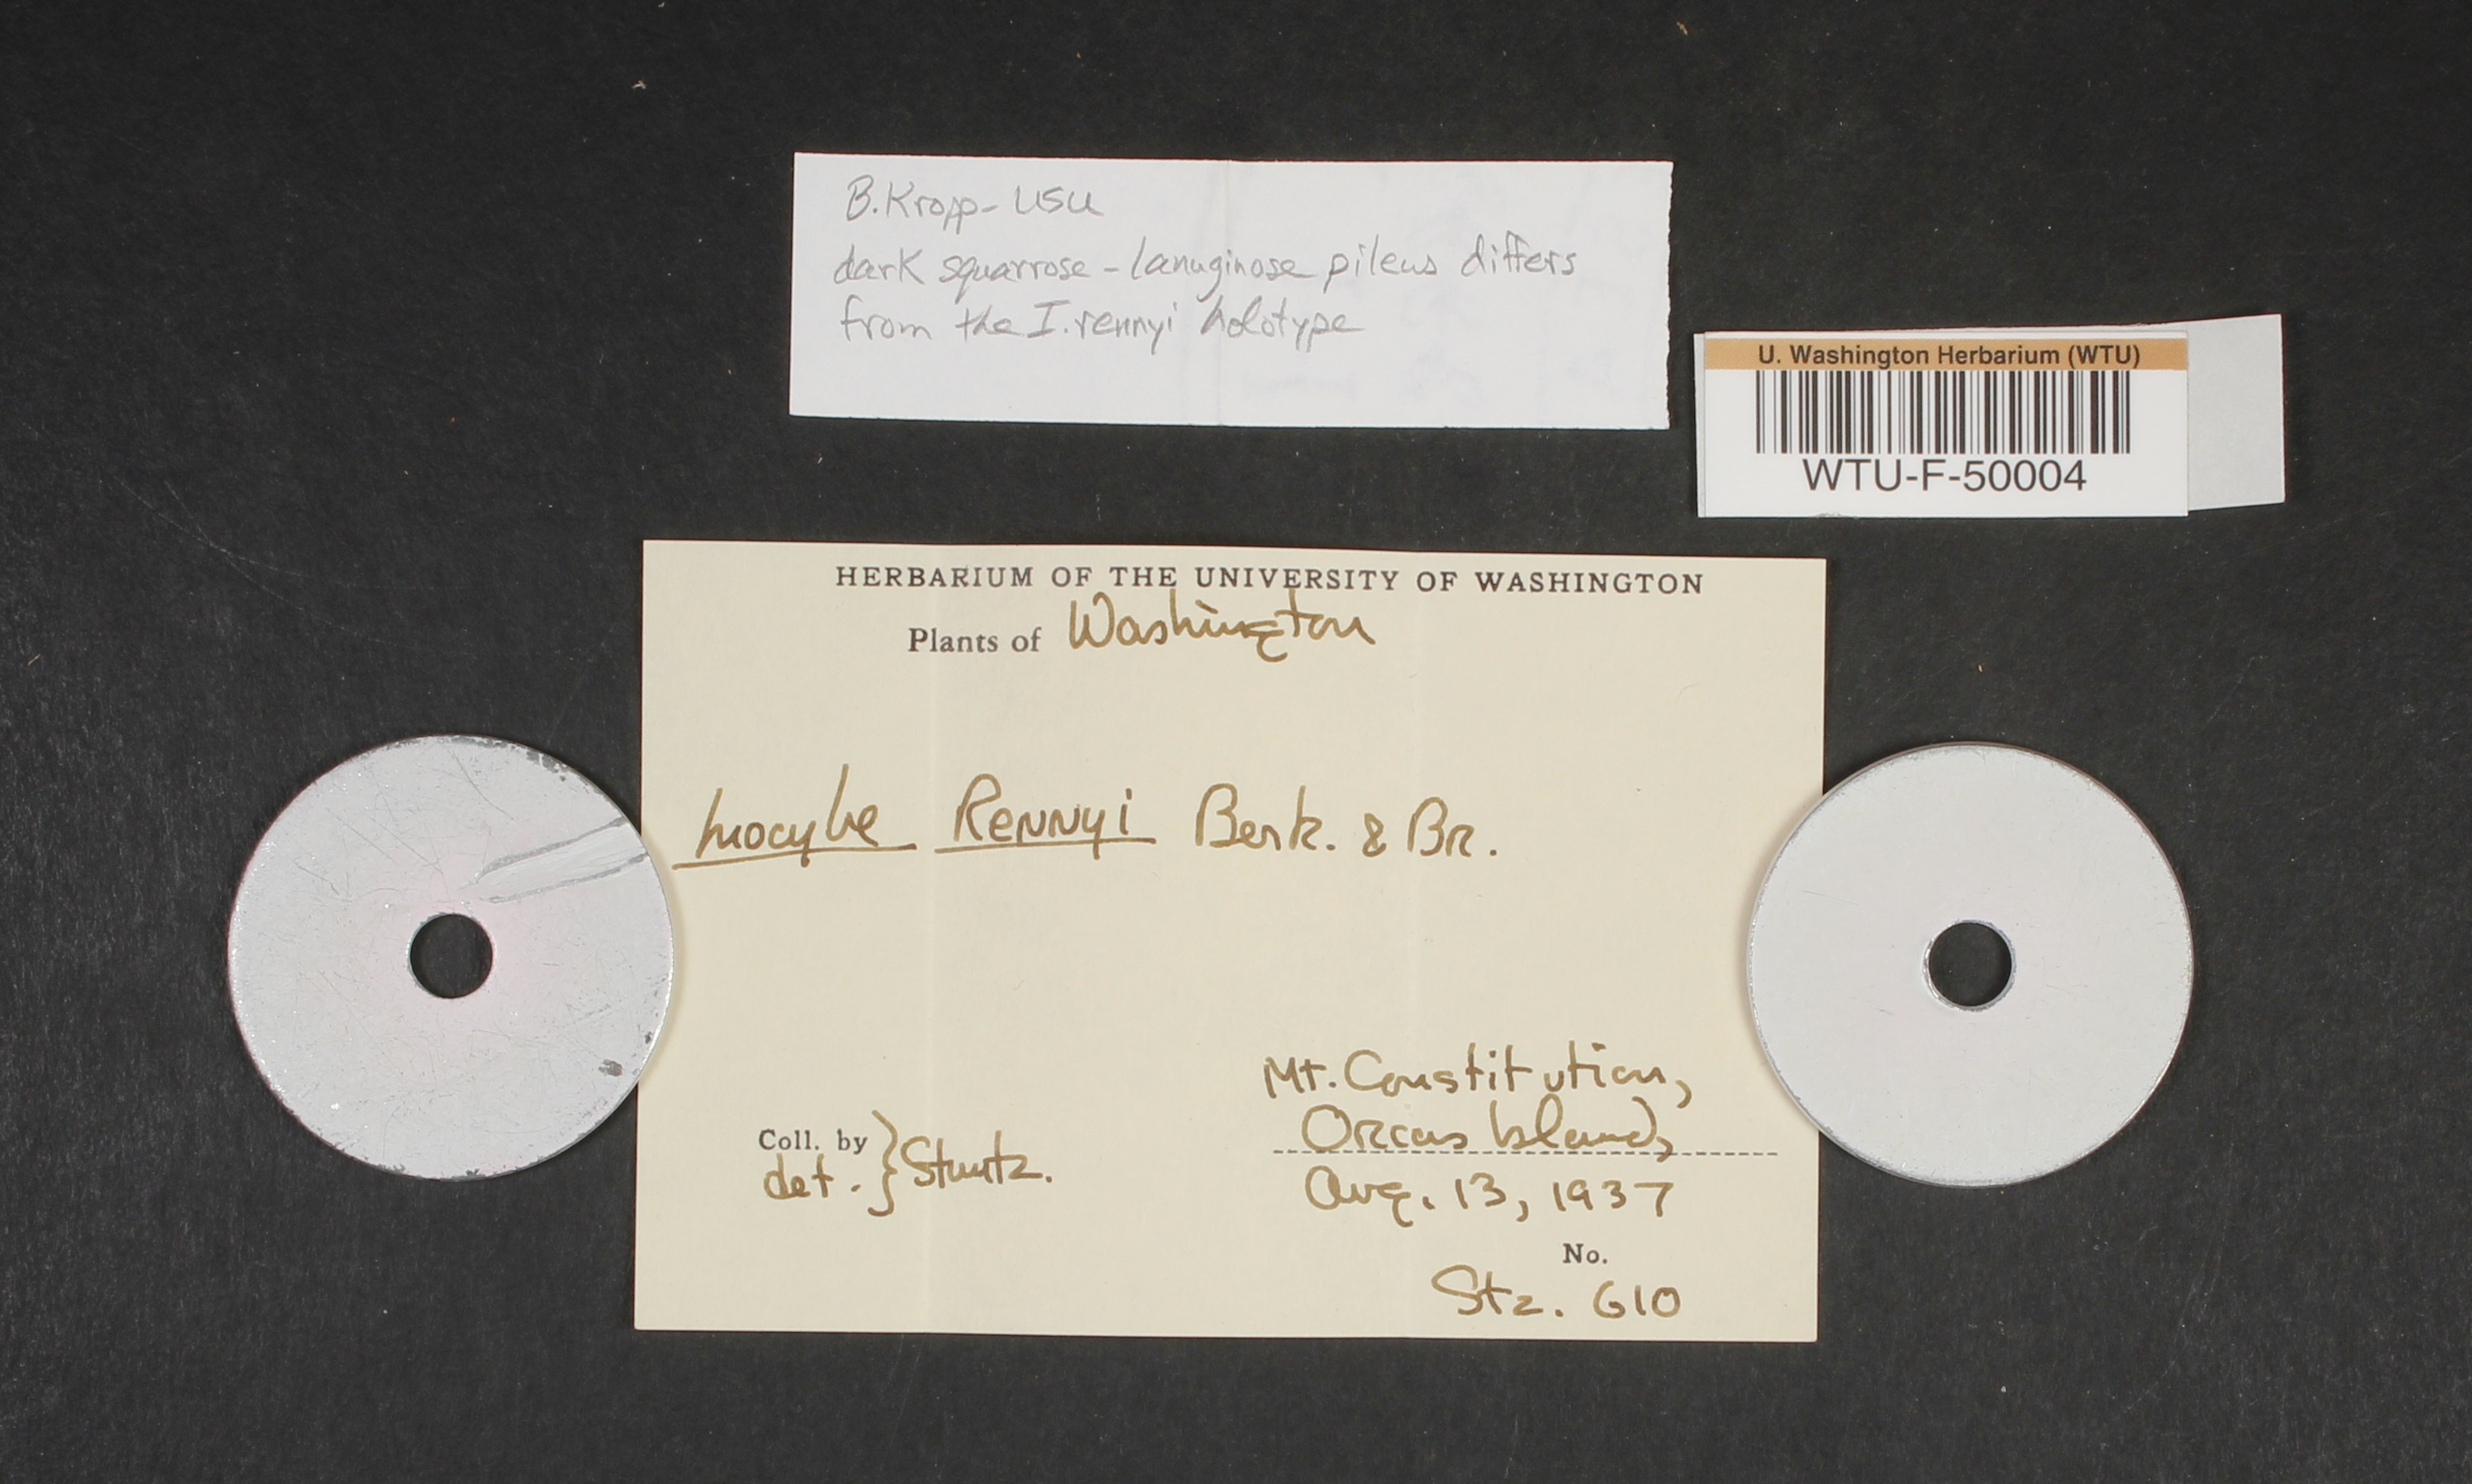 B. Kropp - USU
dark squarrose - lanuginose pileus differs
from the I. rennyi holotype
U. Washington Herbarium (WTU)
WTU-F-50004
HERBARIUM OF THE UNIVERSITY OF WASHINGTON
Plants of Washington
Inocybe Rennyi Berk. & Br.
Mt. Constitution,
Orcas Island,
Coll. by
det. } Stuntz.
Aug. 13, 1937
No.
Stz. 610